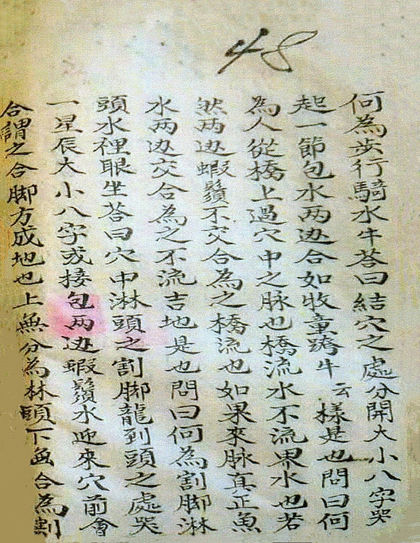 48
何為步行騎水牛荅曰結穴之處分開大小八字哭
起一節包水两边合如收童跨牛云樣是也問曰何
為人從橋上過穴中之脉也橋流水不流界水也若
然两边蝦鬚不交合為之橋流也如果來脉真正魚
水两边交合為之不流吉地是也問曰何為割脚淋
頭水裡眼坐荅曰穴中淋頭之割脚龍到頭之處哭
一星辰大小八字或接包两边蝦鬚水迎來穴前會
合謂之合脚方成地也上無分為林頭下無合為割